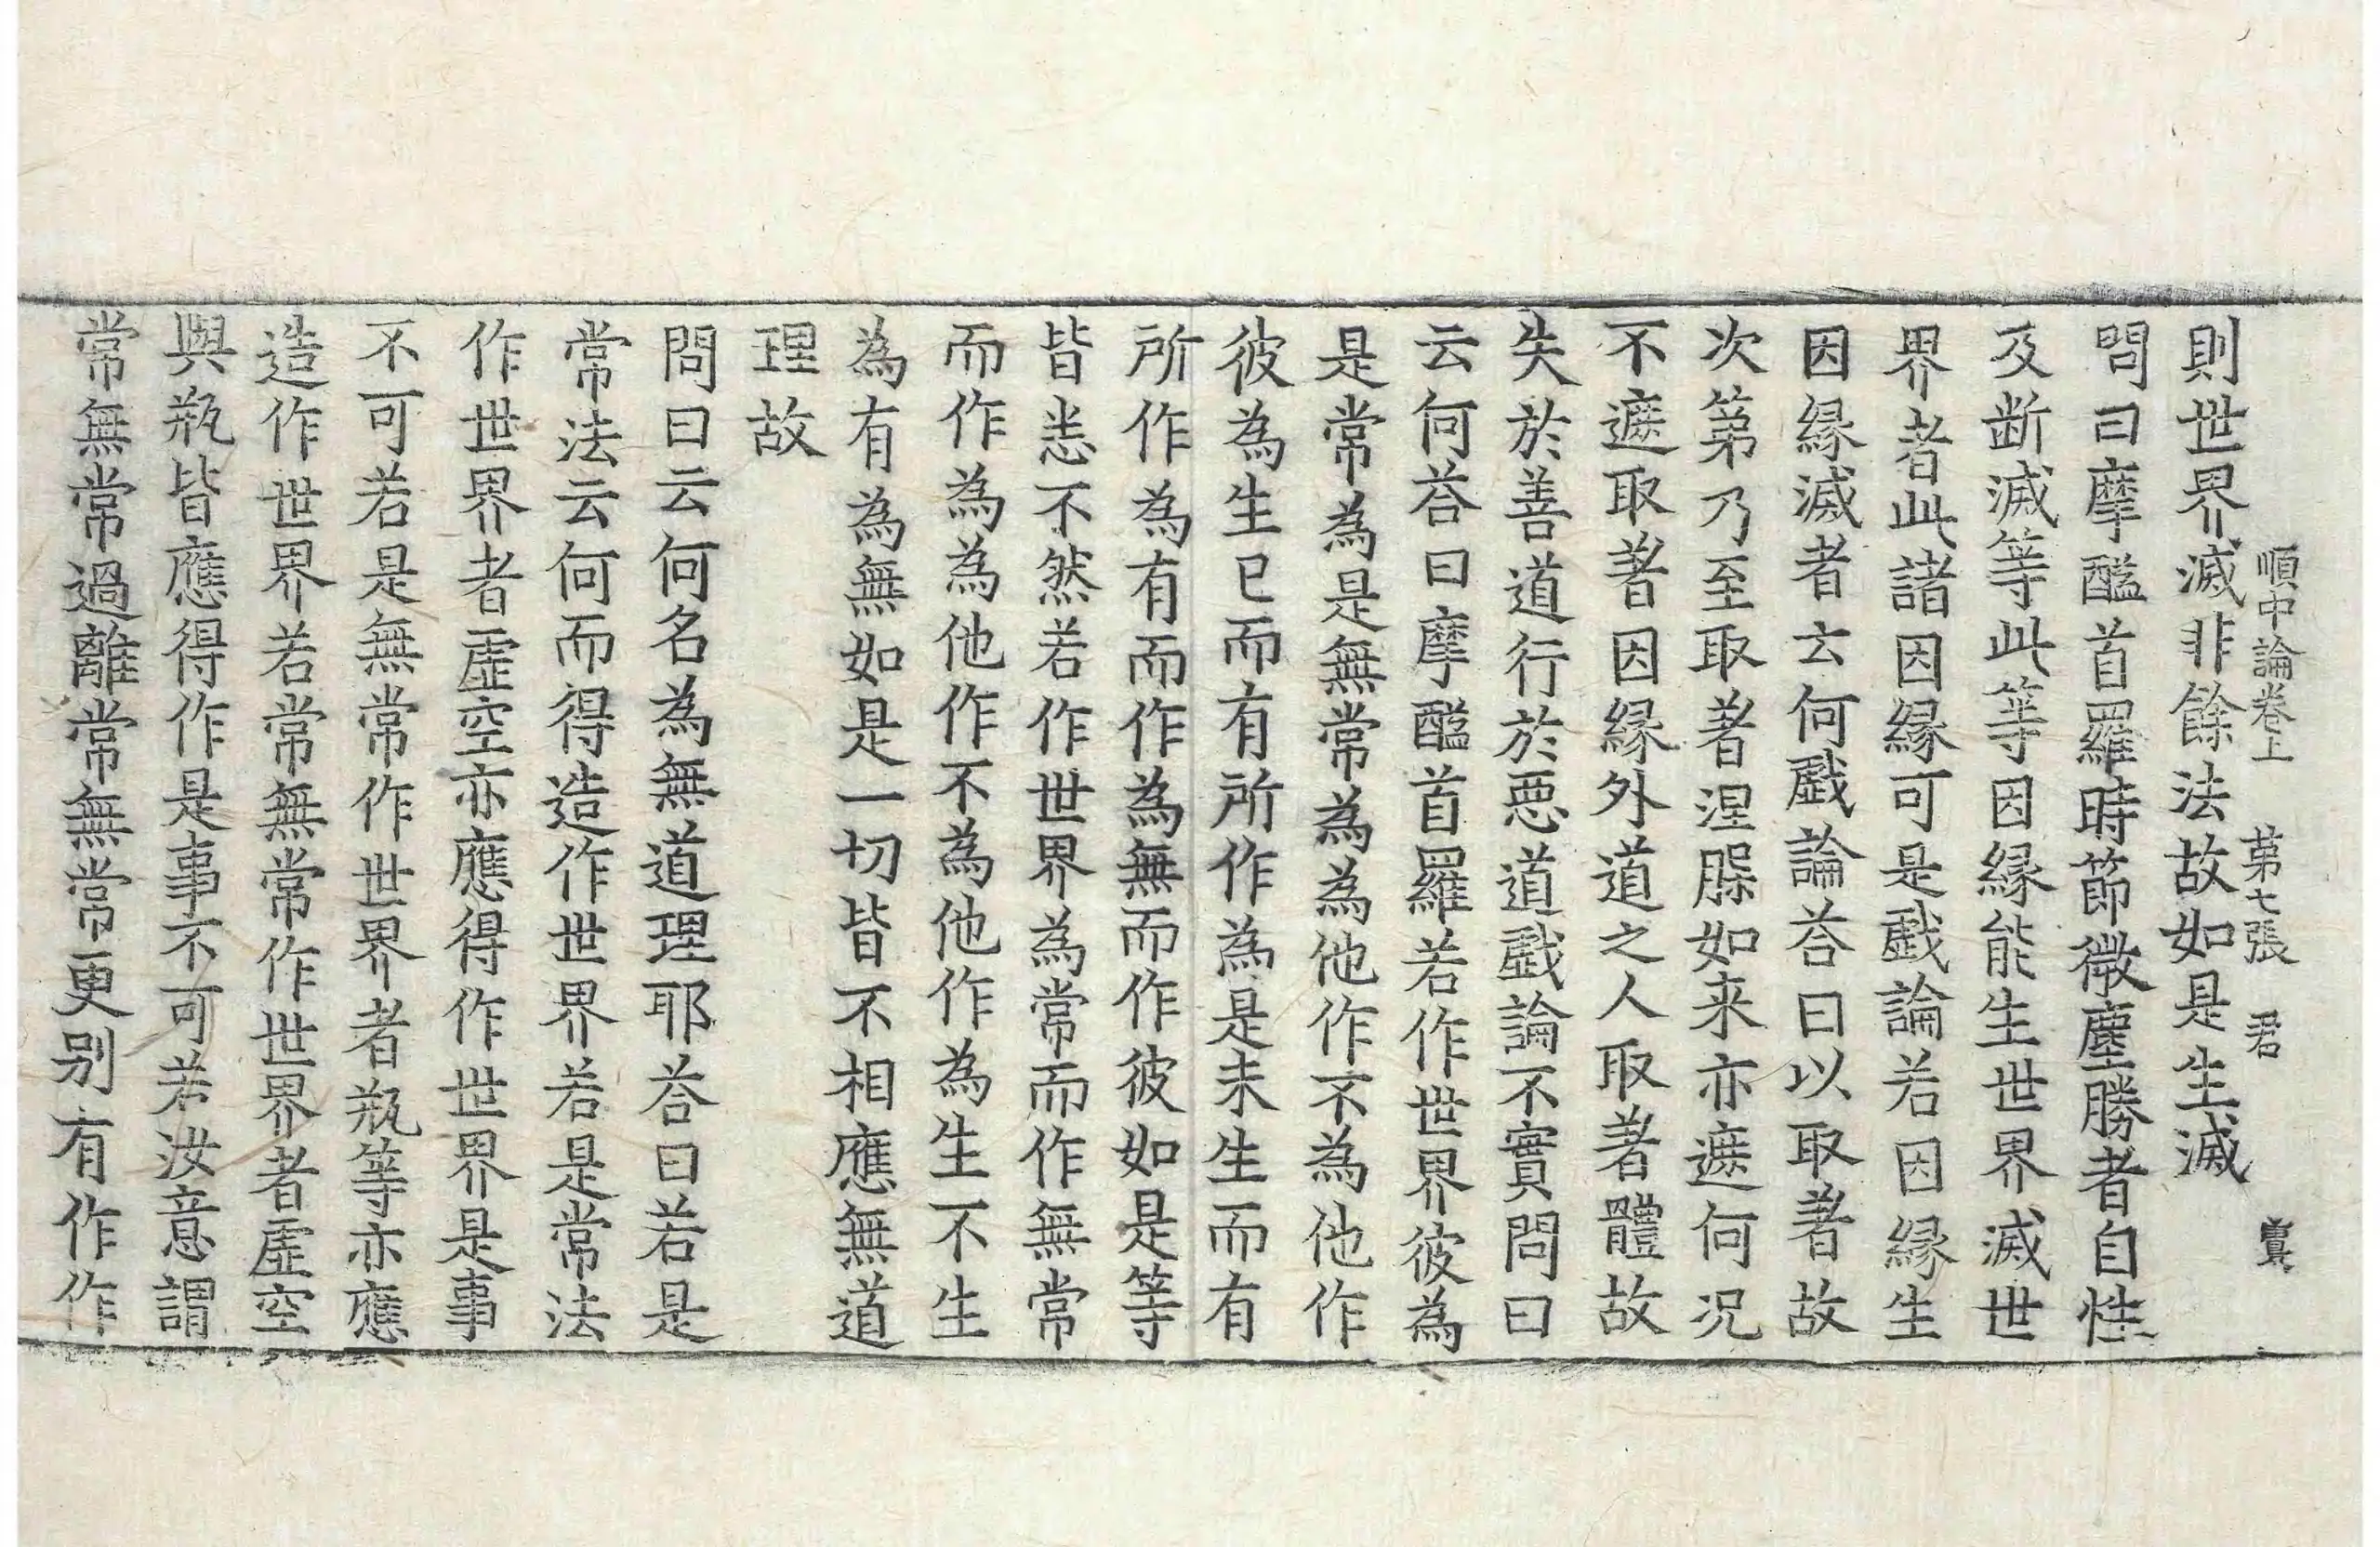 順中論卷上　第七張　君
則世界滅非餘法故如是生滅
問曰摩醯首羅時節微塵勝者自性
及断滅等此等因縁能生世界滅世
界者此諸因縁可是戱論若因縁生
因縁滅者云何戱論荅曰以取著故
次第乃至取著涅槃如来亦遮何況
不遮取著因縁外道之人取著體故
失於善道行於悪道戱論不實問曰
云何荅曰摩醯首羅若作世界彼為
是常為是無常為為他作不為他作
彼為生已而有所作為是未生而有
所作為有而作為無而作彼如是等
皆悉不然若作世界為常而作無常
而作為為他作不為他作為生不生
為有為無如是一切皆不相應無道
理故
問曰云何名為無道理耶荅曰若是
常法云何而得造作世界若是常法
作世界者虛空亦應得作世界是事
不可若是無常作世界者瓶等亦應
造作世界若常無常作世界者虛空
與瓶皆應得作是事不可若汝意謂
常無常過離常無常更別有作作